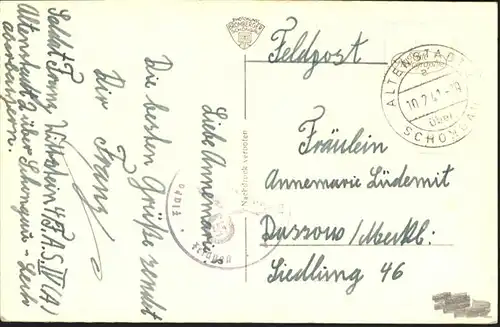 Feldpost
ALTENSTADT
10.2.41-10
über
SCHONGAU
Fräulein
Annemarie Lüdemit
Dassow/Meckl:
Siedlung 46
Nachdruck verboten
Liebe Annemarie
Die besten Grüße sendet
Dir Franz
Soldat Franz
4/F.A.S. III (A)
Altenstadt über Schongau-Lech